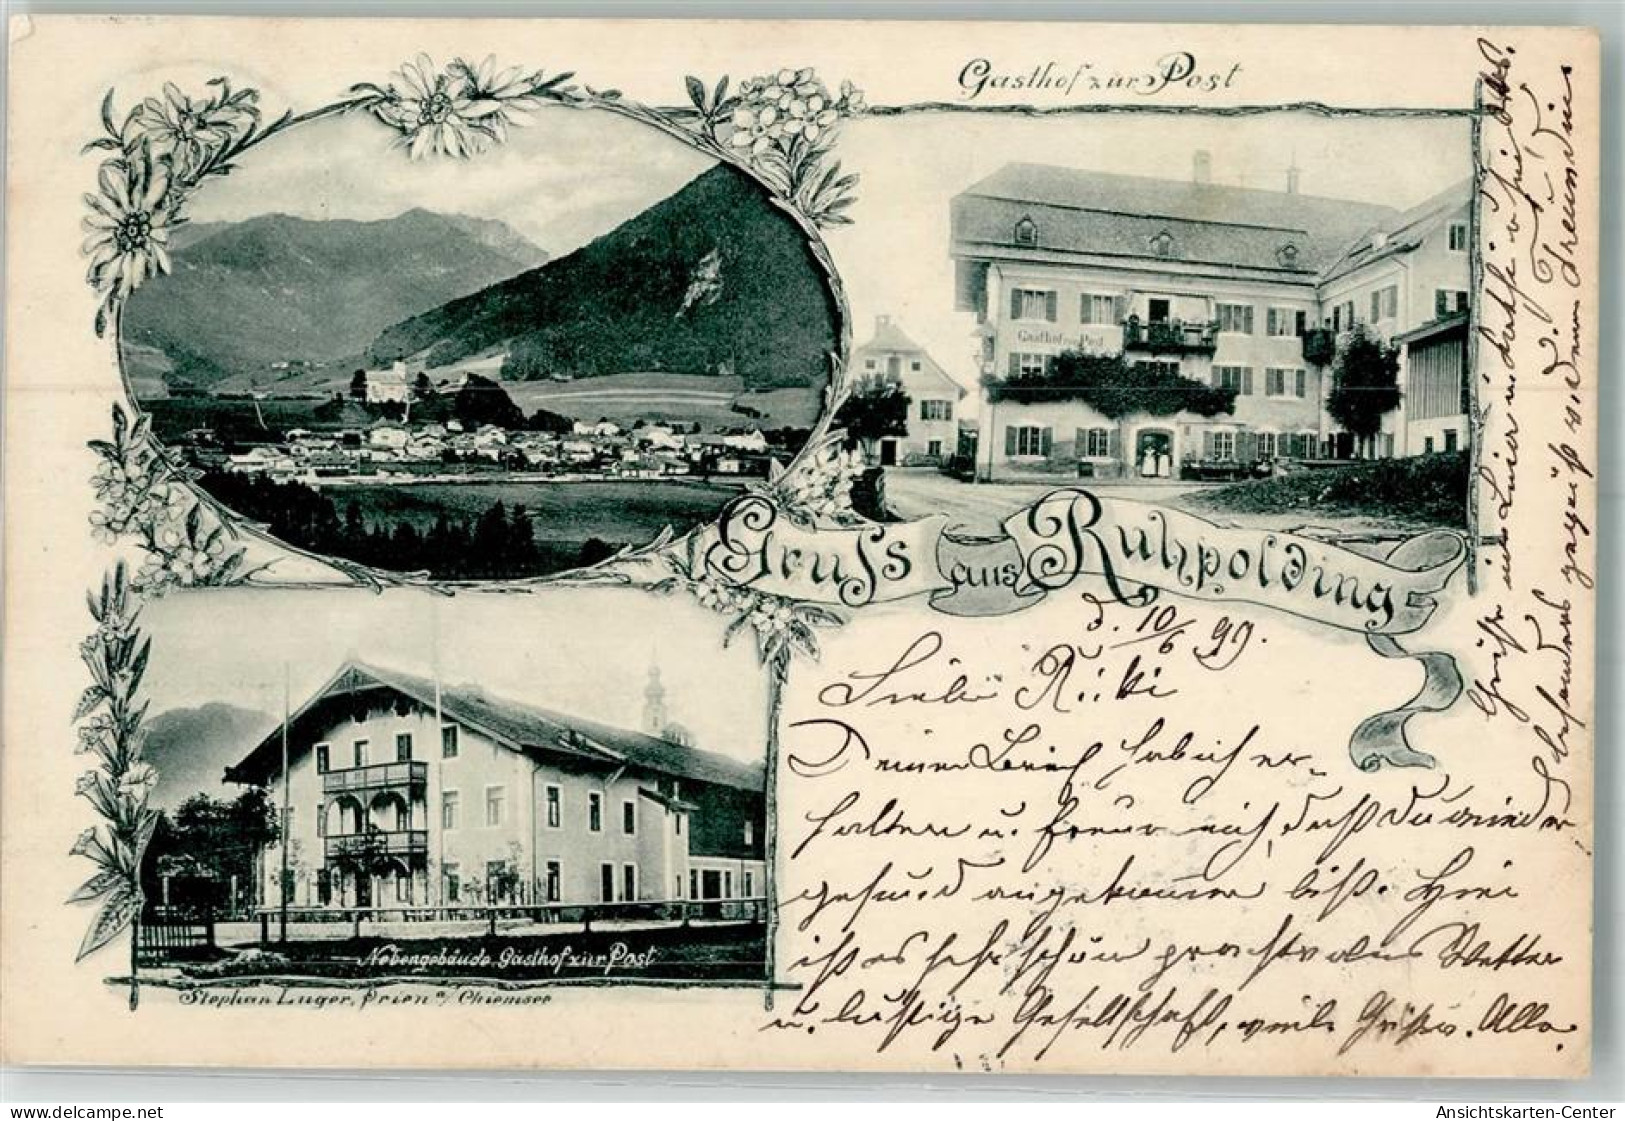 Gasthof zur Post
Gasthof zur Post
Gruss aus Ruhpolding
d. 10/6 99.
Liebe Riki
Deinen Brief hab ich er-
halten u. freue mich, daß Du wieder
gesund angekommen bist. Hier
ist es sehr schön prachtvolles Wetter
u. lustige Gesellschaft, viele Grüße. Alle.
Nebengebäude Gasthof zur Post
Stephan Luger, Prien a/ Chiemsee
Grüße
Ansichtskarten-Center